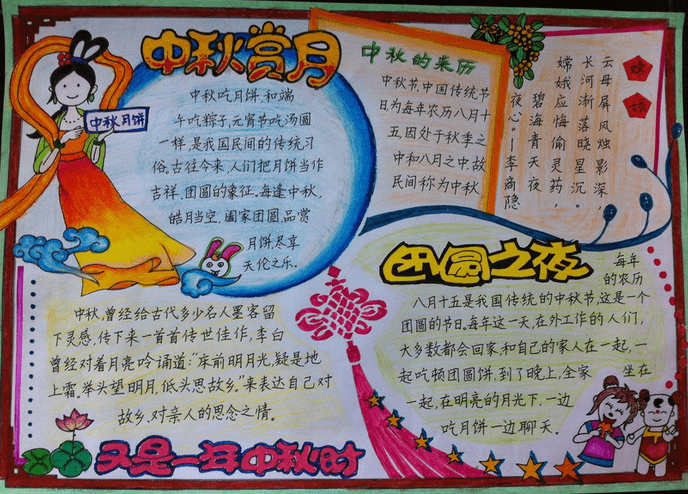 中秋赏月
中秋月饼
中秋吃月饼,和端
午吃粽子,元宵节吃汤圆
一样,是我国民间的传统习
俗.古往今来,人们把月饼当作
吉祥,团圆的象征,每逢中秋,
皓月当空,阖家团圆,品赏
月饼尽享
天伦之乐.
中秋的来历
中秋节,中国传统节
日为每年农历八月十
五因处于秋季之
中和八月之中,故
民间称为中秋
嫦娥
云母屏风烛影深，
长河渐落晓星沉。
嫦娥应悔偷灵药，
碧海青天夜
夜心。—李商隐
团圆之夜
每年
的农历
八月十五是我国传统的中秋节,这是一个
团圆的节日.每年这一天,在外工作的人们,
大多数都会回家,和自己的家人在一起,一
起吃顿团圆饼,到了晚上,全家 坐在
一起,在明亮的月光下,一边
吃月饼一边聊天.
中秋,曾经给古代多少名人墨客留
下灵感,传下来一首首传世佳作,李白
曾经对着月亮吟诵道:“床前明月光,疑是地
上霜.举头望明月,低头思故乡,”来表达自己对
故乡,对亲人的思念之情.
又是一年中秋时